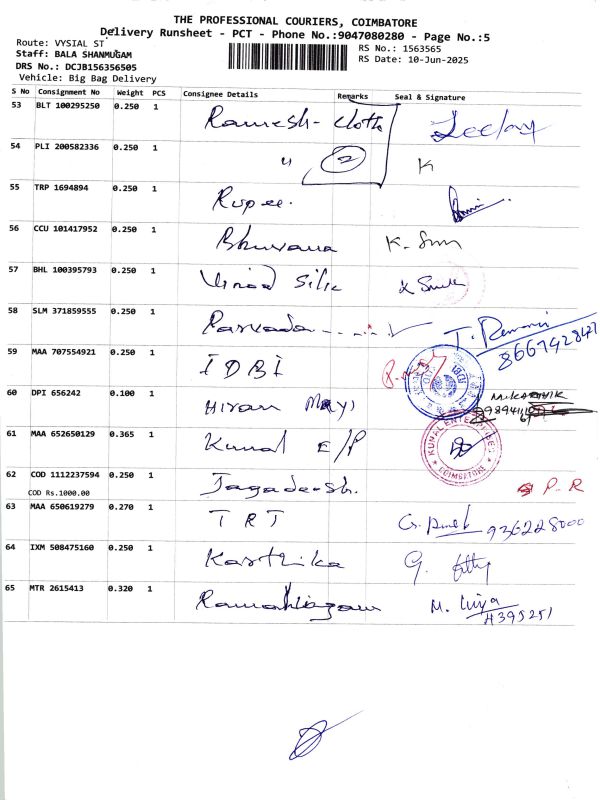 THE PROFESSIONAL COURIERS, COIMBATORE
Delivery Runsheet - PCT - Phone No.:9047080280 - Page No.:5
Route: VYSIAL ST
Staff: BALA SHANMUGAM
DRS No.: DCJB156356505
Vehicle: Big Bag Delivery
RS No.: 1563565
RS Date: 10-Jun-2025
S No Consignment No Weight PCS Consignee Details Remarks Seal & Signature
53 BLT 100295250 0.250 1 Ramesh - Cloth
54 PLI 200582336 0.250 1 " 2 K
55 TRP 1694894 0.250 1 Rupee.
56 CCU 101417952 0.250 1 Bhuvana
57 BHL 100395793 0.250 1 Vinod Silk
58 SLM 371859555 0.250 1
59 MAA 707554921 0.250 1 IDBI
60 DPI 656242 0.100 1
61 MAA 652650129 0.365 1 Kunal E/P KUNAL ENTERPRISES COIMBATORE
62 COD 1112237594 0.250 1 Jagadeesh. P.R
COD Rs.1000.00
63 MAA 650619279 0.270 1 TRT
64 IXM 508475160 0.250 1 Karthika G.
65 MTR 2615413 0.320 1 Ramalingam